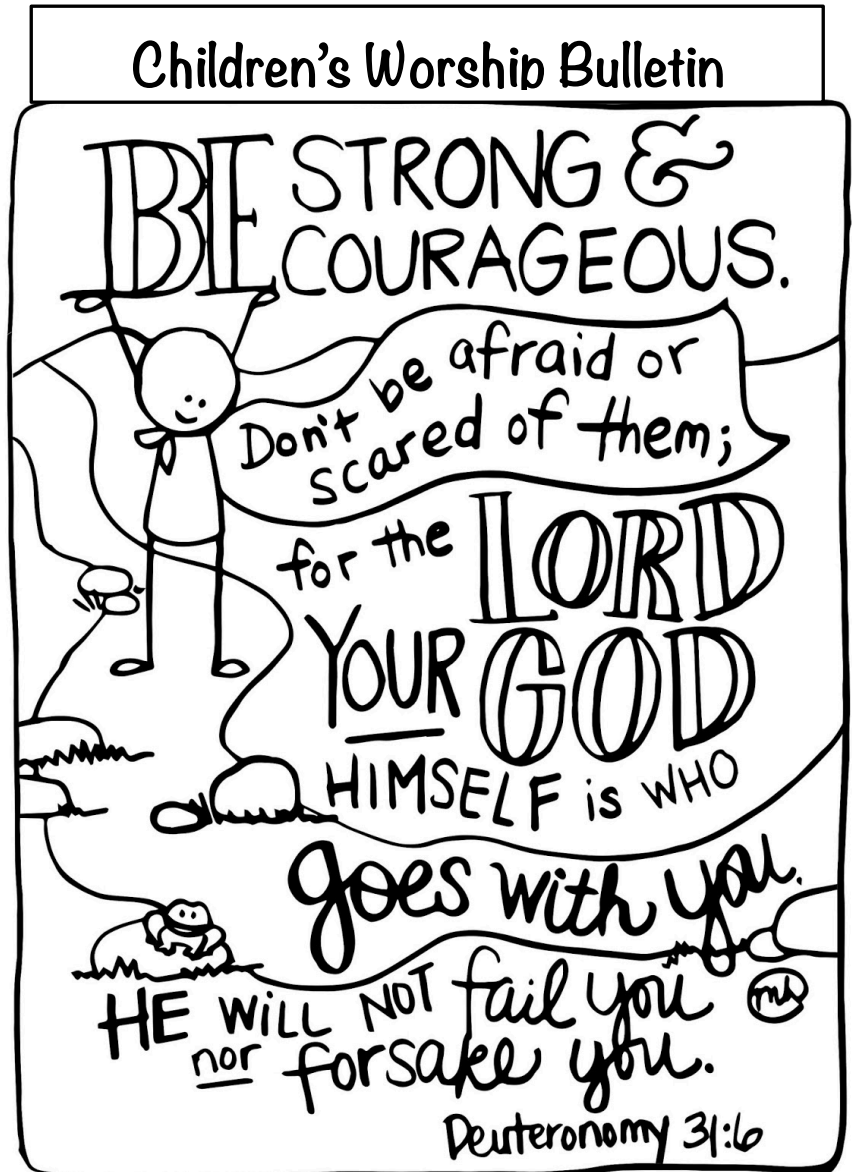 Children's Worship Bulletin
BE STRONG &
COURAGEOUS.
Don't be afraid or
scared of them;
for the LORD
YOUR GOD
HIMSELF is WHO
goes with you.
HE WiLL NOT fail you
nor forsake you.
mh
Deuteronomy 31:6